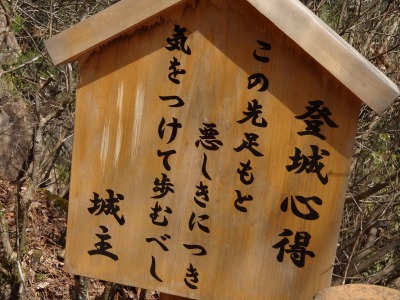 登城心得
この先足もと
悪しきにつき
気をつけて歩むべし
城主